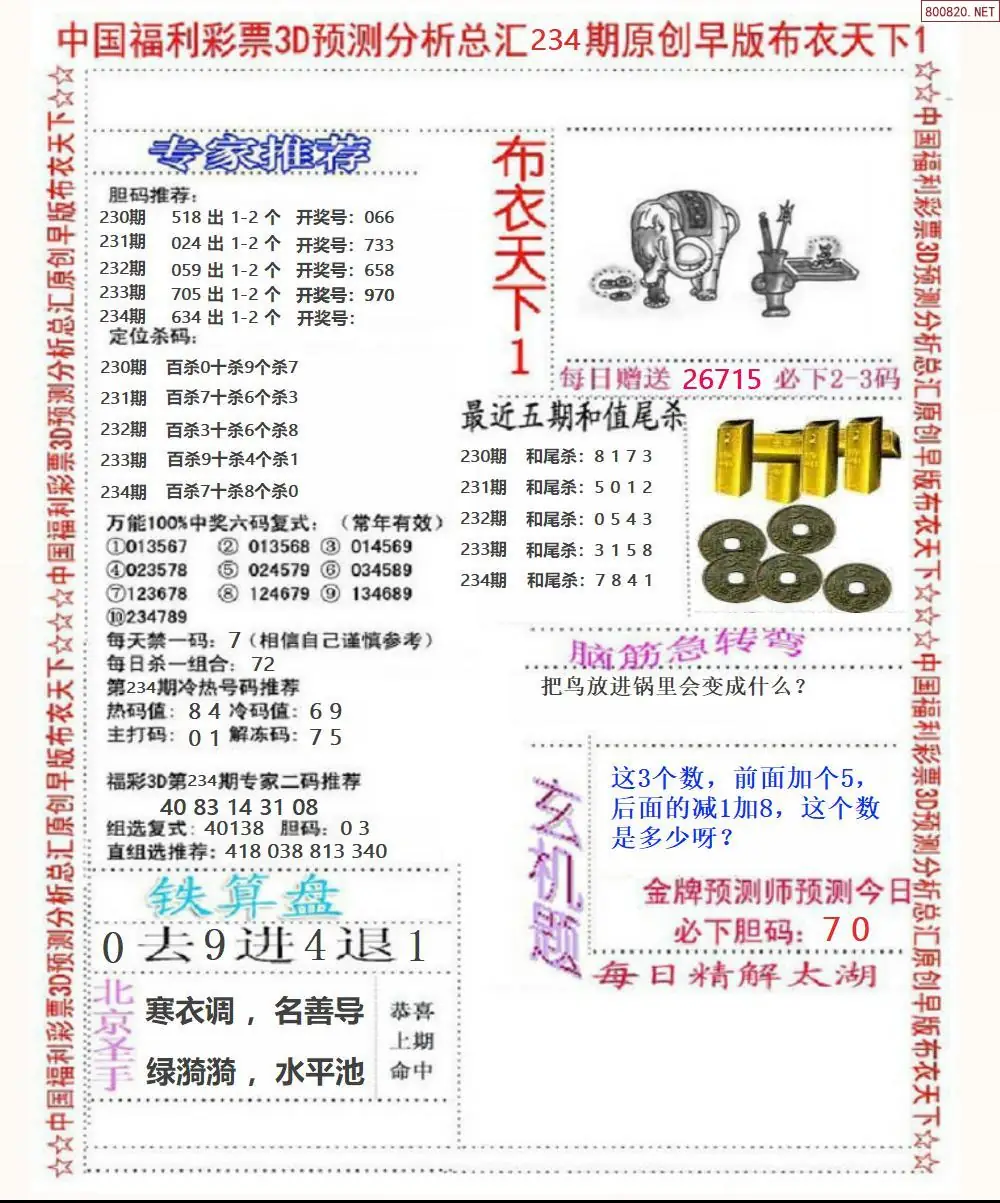 800820.NET
中国福利彩票3D预测分析总汇234期原创早版布衣天下1
☆☆中国福利彩票3D预测分析总汇原创早版布衣天下☆☆☆中国福利彩票3D预测分析总汇原创早版布衣天下☆☆
专家推荐
胆码推荐:
230期 518 出 1-2 个 开奖号: 066
231期 024 出 1-2 个 开奖号: 733
232期 059 出 1-2 个 开奖号: 658
233期 705 出 1-2 个 开奖号: 970
234期 634 出 1-2 个 开奖号:
定位杀码:
230期 百杀0十杀9个杀7
231期 百杀7十杀6个杀3
232期 百杀3十杀6个杀8
233期 百杀9十杀4个杀1
234期 百杀7十杀8个杀0
万能100%中奖六码复式: (常年有效)
①013567 ② 013568 ③ 014569
④023578 ⑤ 024579 ⑥ 034589
⑦123678 ⑧ 124679 ⑨ 134689
⑩234789
每天禁一码: 7(相信自己谨慎参考)
每日杀一组合: 72
第234期冷热号码推荐
热码值: 8 4 冷码值: 6 9
主打码: 0 1 解冻码: 7 5
福彩3D第234期专家二码推荐
40 83 14 31 08
组选复式: 40138 胆码: 0 3
直组选推荐: 418 038 813 340
铁算盘
0去9进4退1
北京圣手
寒衣调，名善导
绿漪漪，水平池
恭喜
上期
命中
布衣天下1
每日赠送 26715 必下2-3码
最近五期和值尾杀
230期 和尾杀: 8 1 7 3
231期 和尾杀: 5 0 1 2
232期 和尾杀: 0 5 4 3
233期 和尾杀: 3 1 5 8
234期 和尾杀: 7 8 4 1
脑筋急转弯
把鸟放进锅里会变成什么?
玄机题
这3个数，前面加个5，
后面的减1加8，这个数
是多少呀?
金牌预测师预测今日
必下胆码: 7 0
每日精解太湖
☆☆中国福利彩票3D预测分析总汇原创早版布衣天下☆☆☆中国福利彩票3D预测分析总汇原创早版布衣天下☆☆